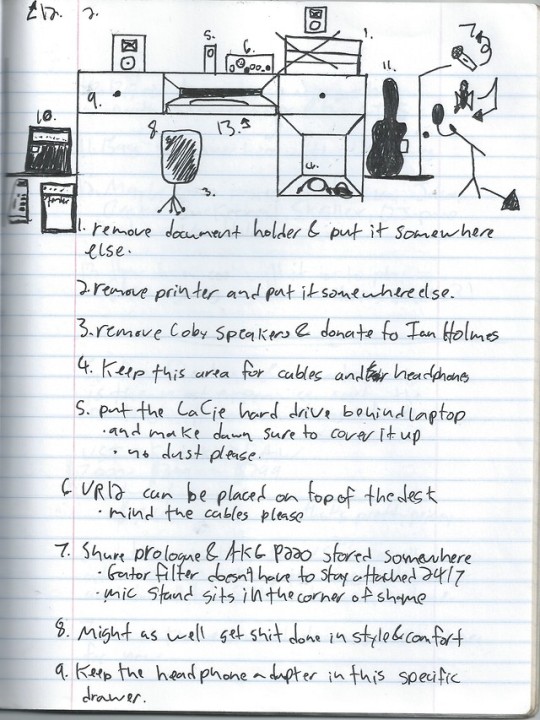 2.
1.
5.
6.
7.
11.
9.
10.
8.
13.
4.
3.
fender
1. remove document holder & put it somewhere
else.
2. remove printer and put it somewhere else.
3. remove Coby speakers & donate to Ian Holmes
4. Keep this area for cables and headphones
5. put the LaCie hard drive behind laptop
• and make damn sure to cover it up
• no dust please.
6 VR12 can be placed on top of the desk
• mind the cables please
7. Shure prologue & AKG P220 stored somewhere
• Gator filter doesn't have to stay attached 24/7
• mic stand sits in the corner of shame
8. Might as well get shit done in style & comfort
9. Keep the headphone adapter in this specific
drawer.